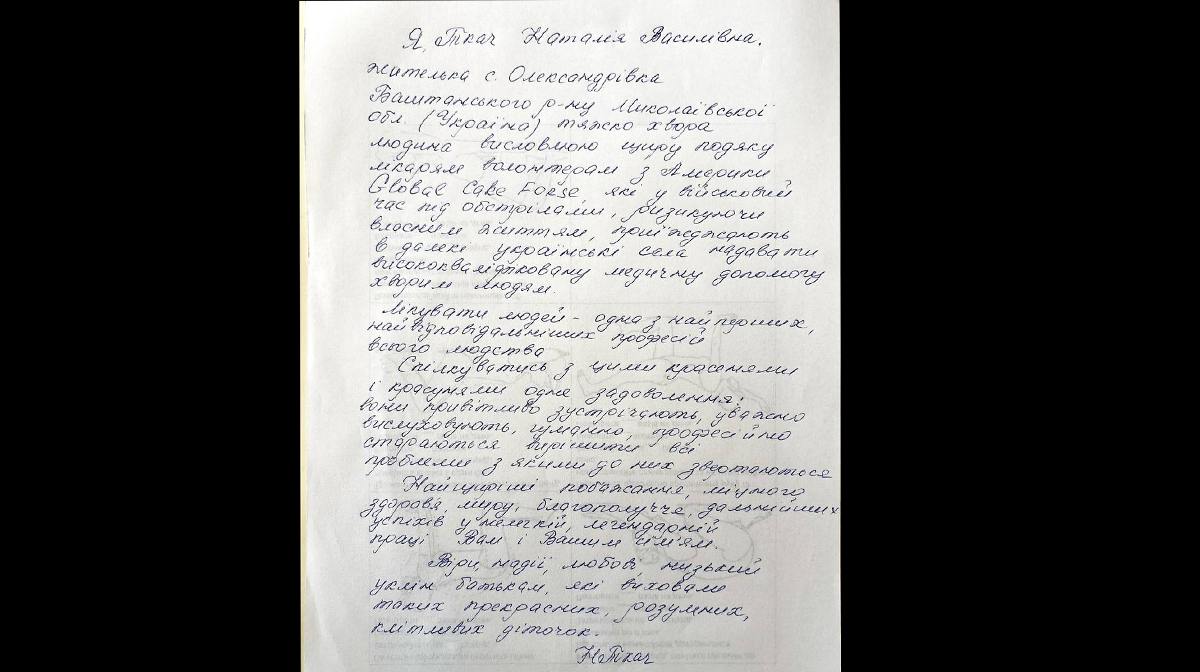 Я, Ткач Наталія Василівна,
жителька с. Олександрівка
Баштанського р-ну Миколаївської
обл. (Україна) тяжко хвора
людина висловлюю щиру подяку
лікарям волонтерам з Америки
Global Cake Forse які у військовий
час під обстрілами, ризикуючи
власним життям, приїжджають
в далекі українські села надавати
висококваліфіковану медичну допомогу
хворим людям.
Лікувати людей - одна з найперших,
найвідповідальніших професій
всього людства
Спілкуватись з цими красенями
і красунями одне задоволення:
вони привітливо зустрічають, уважно
вислуховують, гуманно, професійно
стараються вирішити всі
проблеми з якими до них звертаються
Найщиріші побажання, міцного
здоров'я, миру, благополуччє, дальнійших
успіхів у нелегкій, легендарній
праці Вам і Вашим сім'ям.
Віри, надії, любові низький
уклін батькам, які виховали
таких прекрасних, розумних,
кмітливих діточок.
НТкач